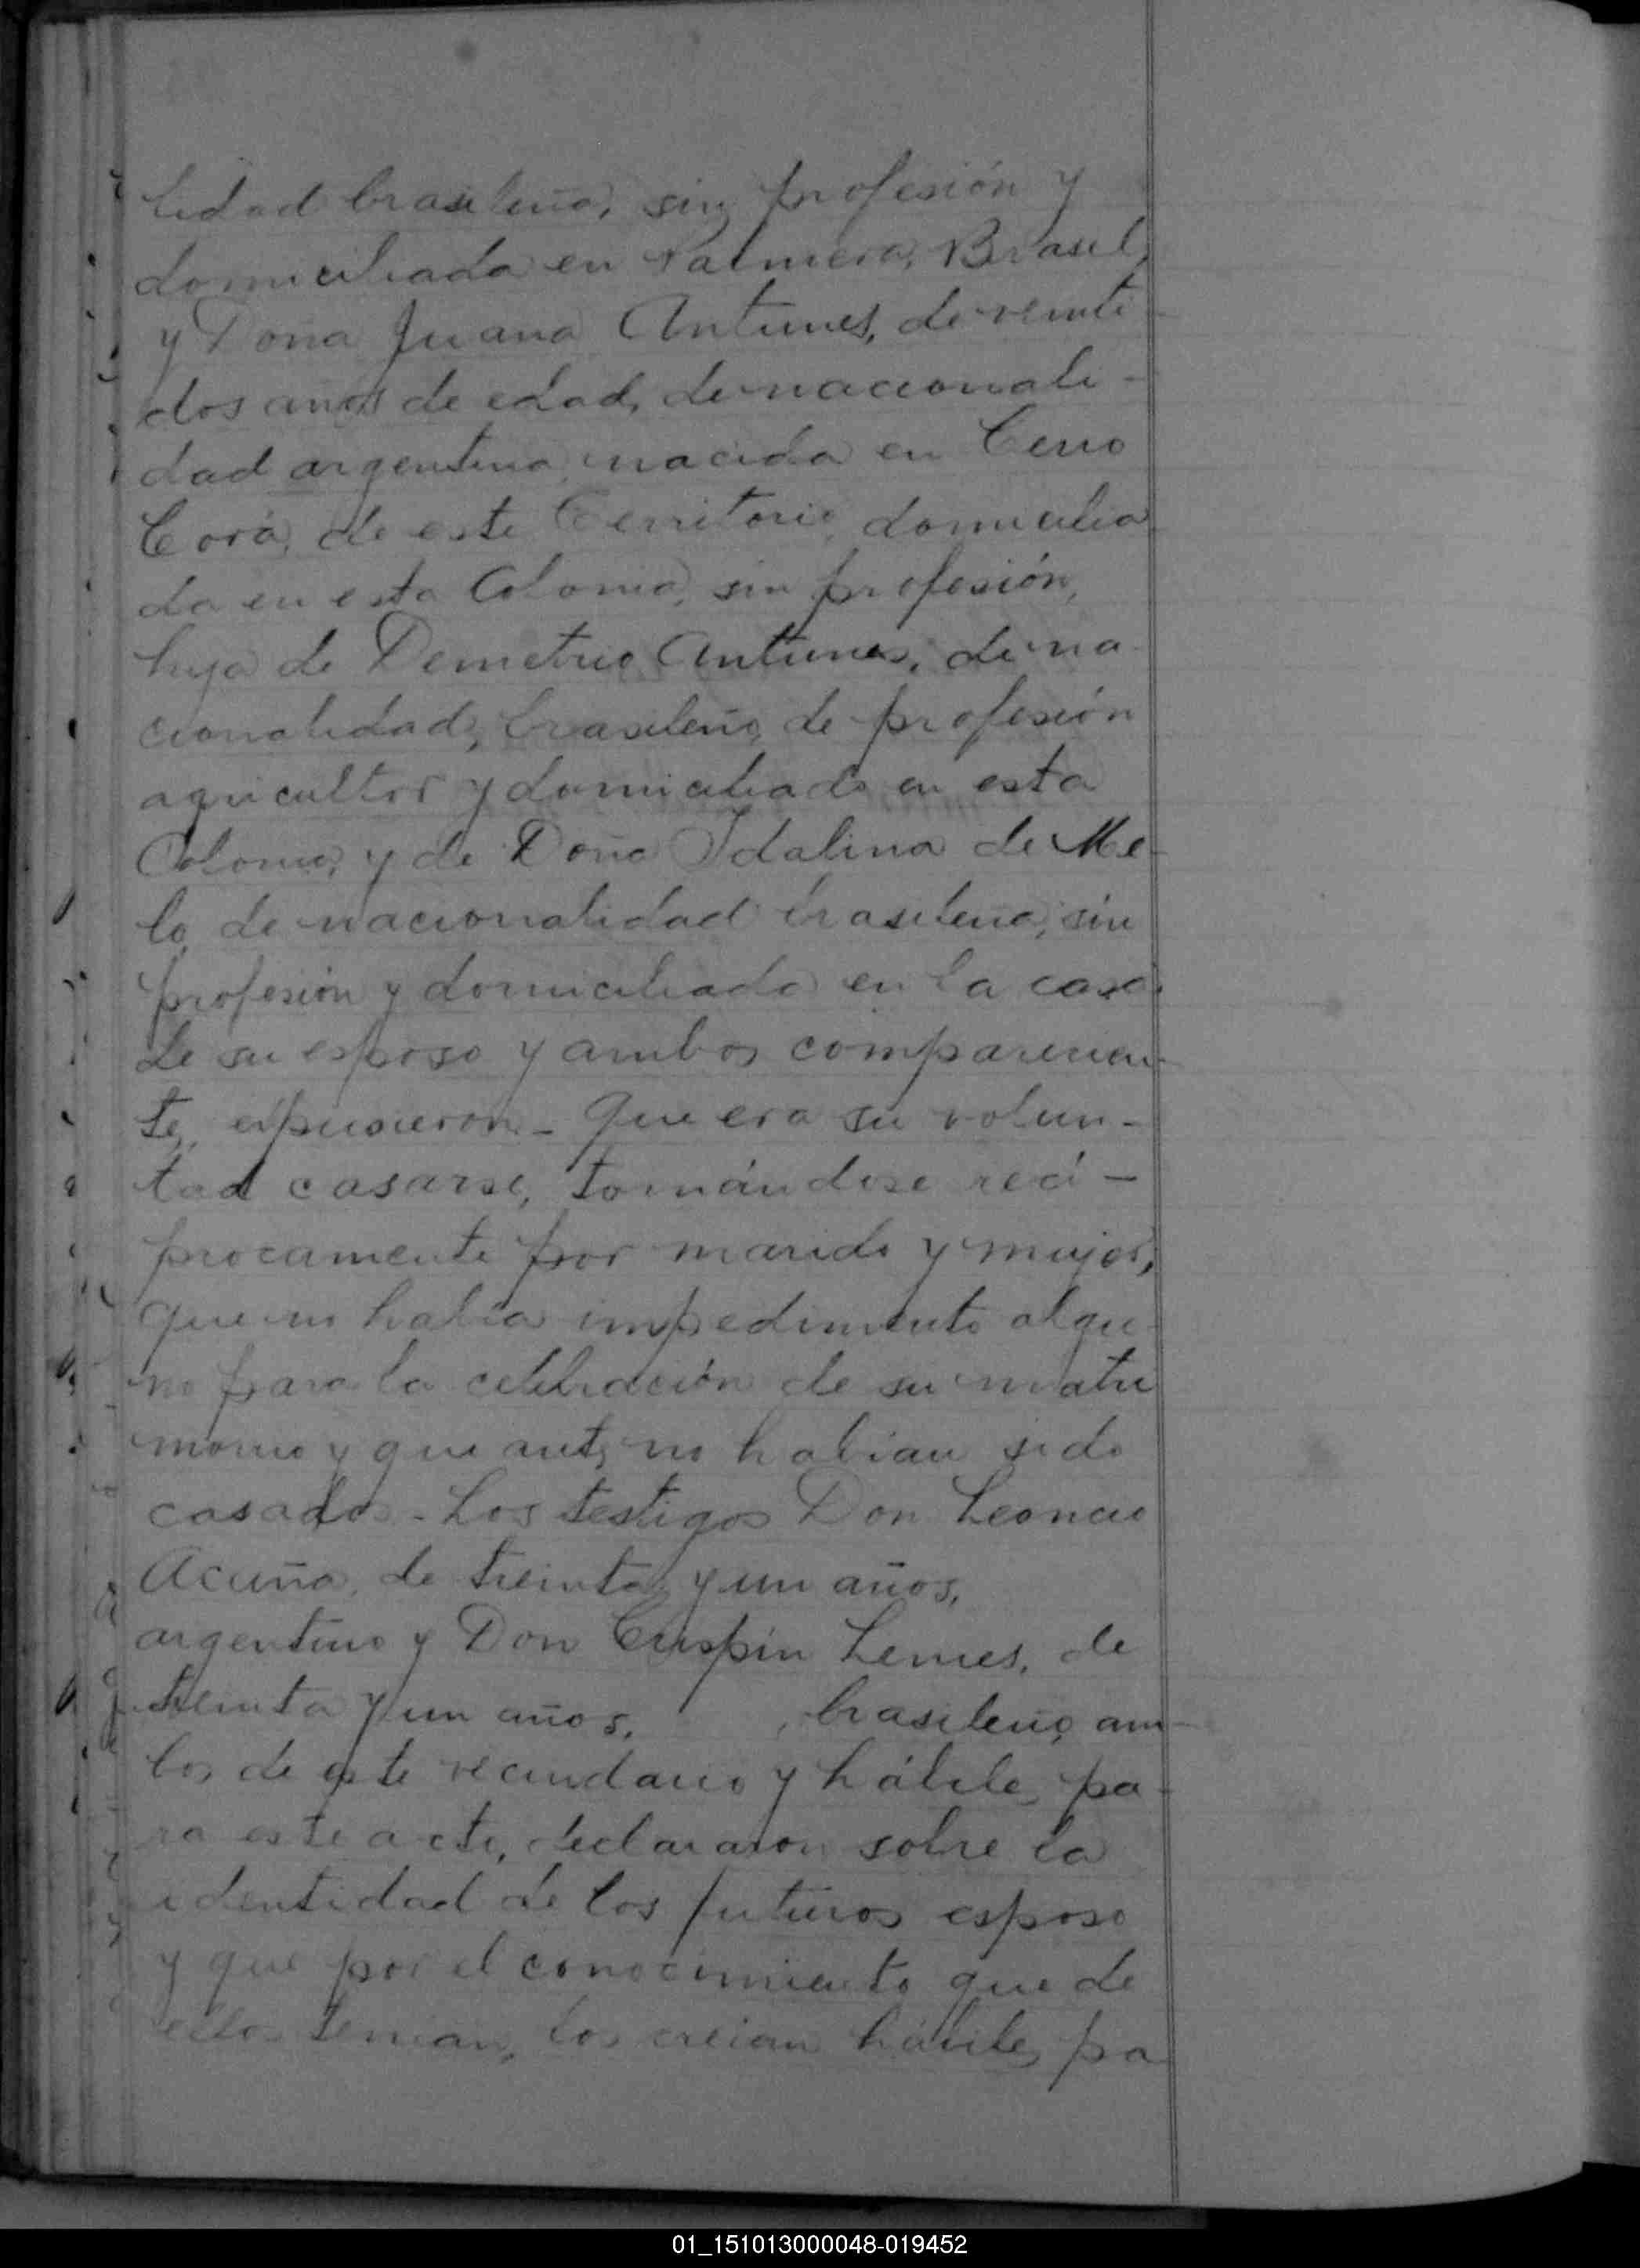 lidad brasileña, sin profesión y
domiciliada en Palmera, Brasil,
y Doña Juana Antunes, de veinti
dos años de edad, de nacionali-
dad argentina, nacida en Cerro
Corá, de este Territorio, domicilia
da en esta Colonia, sin profesión,
hija de Demetrio Antunes, de na-
cionalidad, brasileño, de profesión
agricultor y domiciliado en esta
Colonia, y de Doña Idalina de Me-
lo, de nacionalidad brasileña, sin
profesión y domiciliada en la casa
de su esposo y ambos comparecien-
tes, expusieron - Que era su volun-
tad casarse, tomándose recí-
procamente por marido y mujer,
que no había impedimento algu-
no para la celebración de su matri
monio y que antes no habian sido
casados - Los testigos Don Leoncio
Acuña, de treinta y un años,
argentino y Don Crispín Lemes, de
treinta y un años, , brasileño, am-
bos de este vecindario y hábiles pa-
ra este acto, declararon sobre la
identidad de los futuros esposos
y que por el conocimiento que de
ellos tenian, los creian hábiles pa
01_151013000048-019452